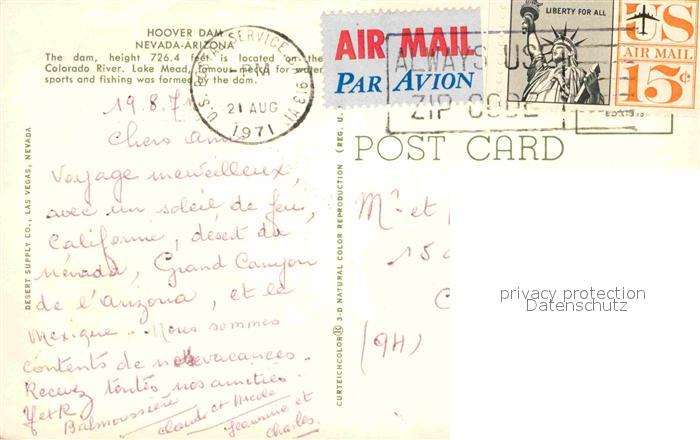 HOOVER DAM
NEVADA-ARIZONA
The dam, height 726.4 feet is located on the
Colorado River. Lake Mead, famous mecca for water
sports and fishing was formed by the dam.
19.8.71
Chers amis
Voyage merveilleux,
avec un soleil de feu,
Californie, désert du
Névada, Grand Canyon
de l'Arizona, et le
Mexique. Nous sommes
contents de nos vacances.
Recevez toutes nos amitiés.
Y et R
Balmoussière
Claude et Nicole
Jeannine et
Charles.
DESERT SUPPLY CO., LAS VEGAS, NEVADA
CURTEICHCOLOR® 3-D NATURAL COLOR REPRODUCTION (REG. U.
U.S. SERVICE
21 AUG
1971
AIR MAIL
PAR AVION
ALWAYS USE
ZIP CODE
LIBERTY FOR ALL
US
AIR MAIL
15¢
POST CARD
Mr et
15
(94)
privacy protection
Datenschutz